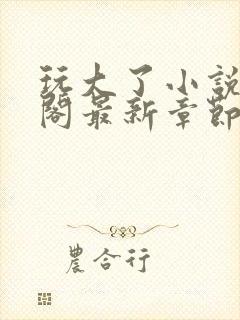 玩大了小說
閣最新章節
農合行